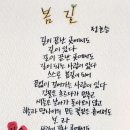 봄 길
정호승
길이 끝나는 곳에서도
길이 있다
길이 끝나는 곳에서도
길이 되는 사람이 있다
스스로 봄길이 되어
끝없이 걸어가는 사람이 있다
강물은 흐르다가 멈추고
새들은 날아가 돌아오지 않고
하늘과 땅 사이의 모든 꽃잎은 흩어져도
보라